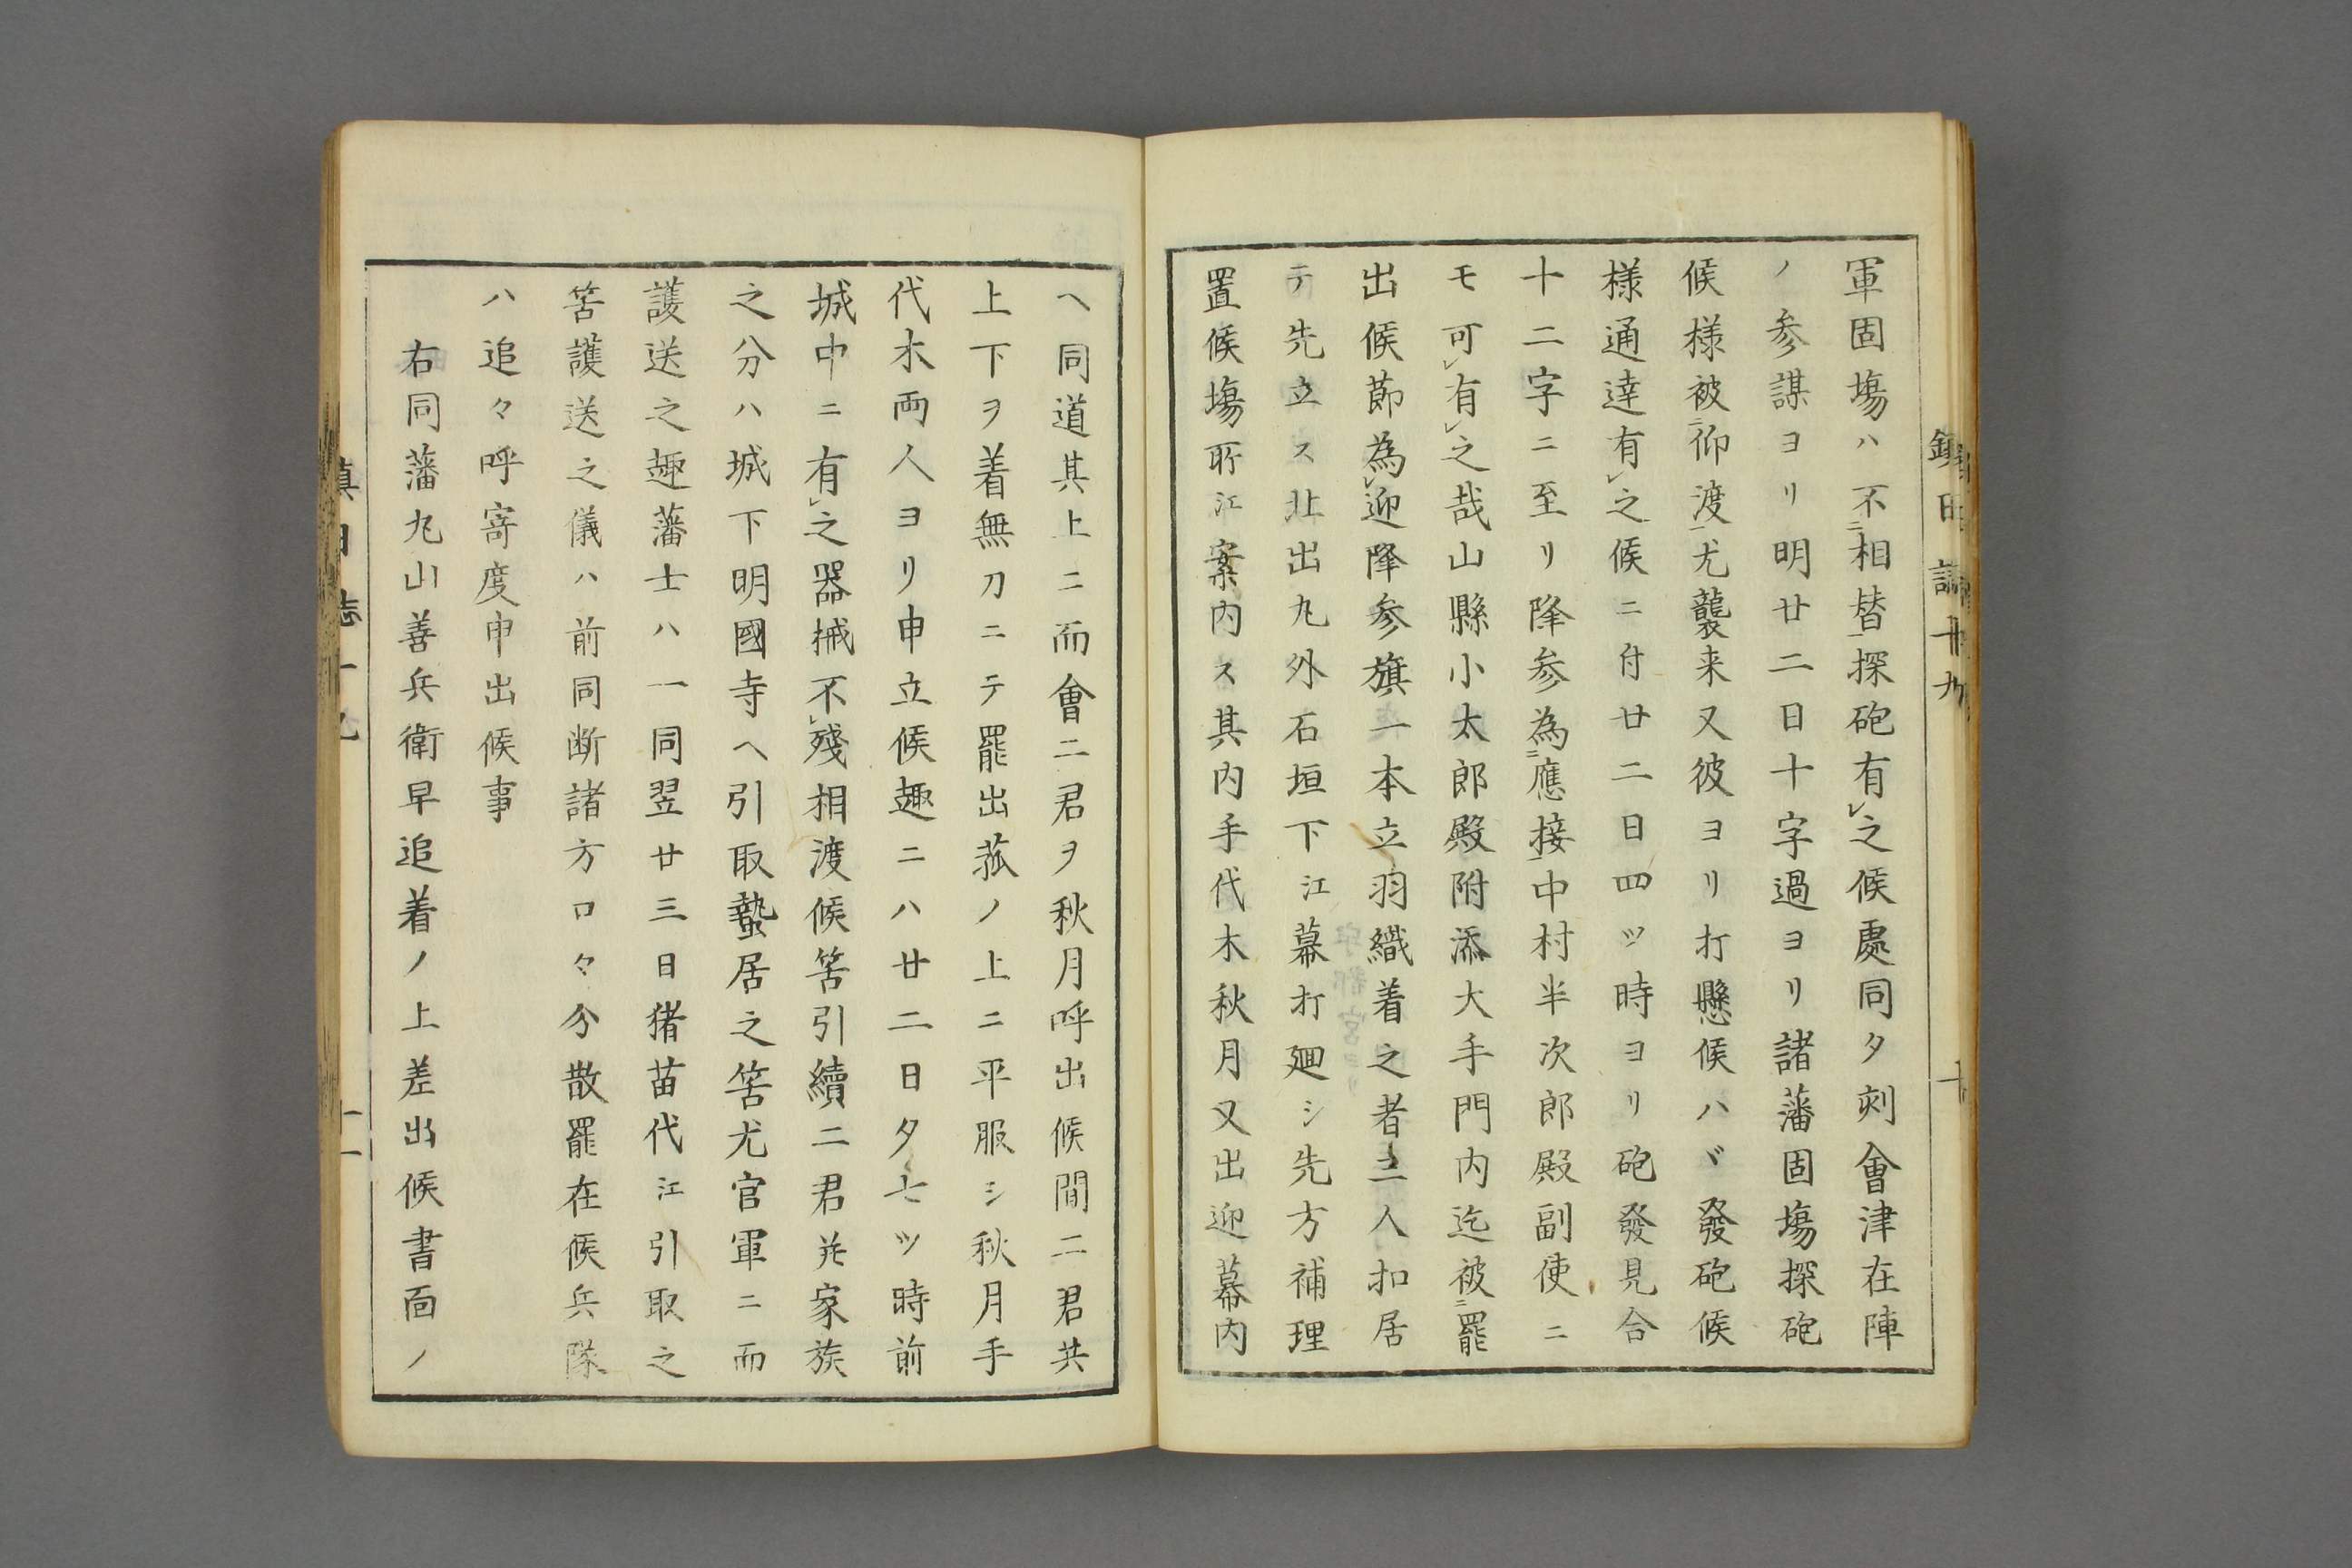 軍固塲ハ不㆓相替㆒探砲有㆑之候處同夕刻會津在陣
ノ参謀ヨリ明廿二日十字過ヨリ諸藩固塲探砲
候様被㆓仰渡㆒尤襲来又彼ヨリ打懸候ハヾ發砲候
様通達有㆑之候ニ付廿二日四ツ時ヨリ砲發見合
十二字ニ至リ降参為㆓應接㆒中村半次郎殿副使ニ
モ可㆑有㆑之哉山縣小太郎殿附添大手門内迄被㆓罷
出候節為㆑迎降参旗一本立羽織着之者三人扣居
テ先立ス北出丸外石垣下江幕打廻シ先方補理
置候塲所江案内ス其内手代木秋月又出迎幕内
ヘ同道其上ニ而會二君ヲ秋月呼出候間二君共
上下ヲ着無刀ニテ罷出菰ノ上ニ平服シ秋月手
代木両人ヨリ申立候趣ニハ廿二日夕七ツ時前
城中ニ有㆑之器械不㆑殘相渡候筈引續二君并家族
之分ハ城下明國寺ヘ引取蟄居之筈尤官軍ニ而
護送之趣藩士ハ一同翌廿三日猪苗代江引取之
筈護送之儀ハ前同断諸方口々分散罷在候兵隊
ハ追々呼寄度申出候事
右同藩丸山善兵衛早追着ノ上差出候書面ノ
鎮日誌十九
十
鎮日誌十九
十一